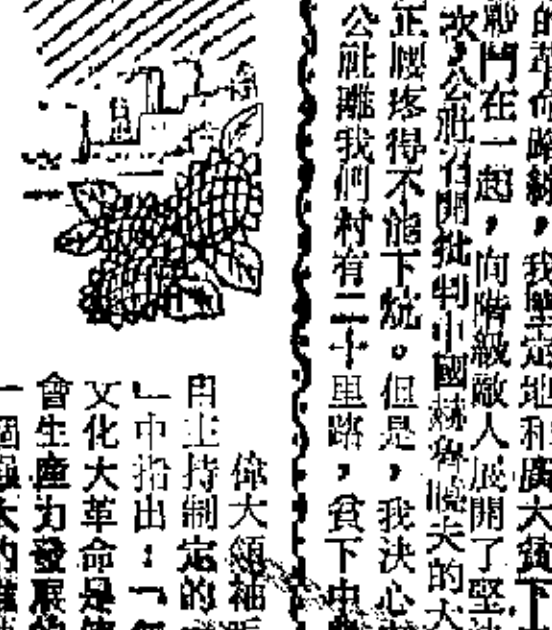 的革命路線，我堅定地和廣大貧下
戰鬥在一起，向階級敵人展開了堅決
次，公社召開批判中國赫魯曉夫的大
正腰疼得不能下炕。但是，我決心
公社離我們村有二十里路，貧下中
偉大領袖
自主持制定的
」中指出：「
文化大革命是
會生產力發展的
一個強大的推